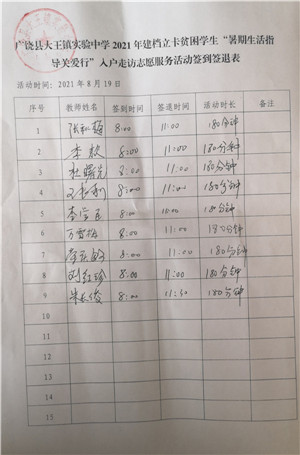 广饶县大王镇实验中学2021年建档立卡贫困学生“暑期生活指
导关爱行”入户走访志愿服务活动签到签退表
活动时间：2021年8月19日
序号 教师姓名 签到时间 签退时间 活动时长 备注
1 8:00 11:00 180分钟
2 李 8:00 11:00 180分钟
3 杜曙光 8:00 11:00 180分钟
4 8:00 11:00 180分钟
5 李 8:00 11:00 180分钟
6 万雪梅 8:00 11:00 180分钟
7 8:00 11:00 180分钟
8 刘红珍 8:00 11:00 180分钟
9 朱长俊 8:00 180分钟
10
11
12
13
14
15